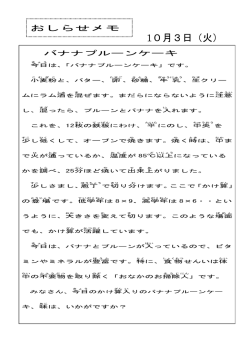 おしらせメモ
10月3日（火）
バナナプルーンケーキ
今日は、「バナナプルーンケーキ」です。
小麦粉と、バター、卵、砂糖、牛乳、生クリー
ムにラム酒を混ぜます。まだらにならないように注意
し、混ったら、プルーンとバナナを入れます。
これを、12枚の鉄板にわけ、平にのし、中央を
少し低くして、オーブンで焼きます。焼く時は、中ま
で火が通っているか、温度が85℃以上になっている
かを調べ、25分ほど焼いて出来上がりました。
少しさまし、包丁で切り分けます。ここで「かけ算」
の登場です。低学年は8＝9。高学年は8＝6・・とい
うように、大きさを変えて切ります。このような場面
でも、かけ算が活躍しています。
今日は、バナナとプルーンが入っているので、ビタ
ミンやミネラルが豊富です。特に、食物せんいは体
中の不要物を取り除く「おなかのお掃除人」です。
みなさん、今日のかけ算入りのバナナプルーンケー
キ、味は、いかがですか？